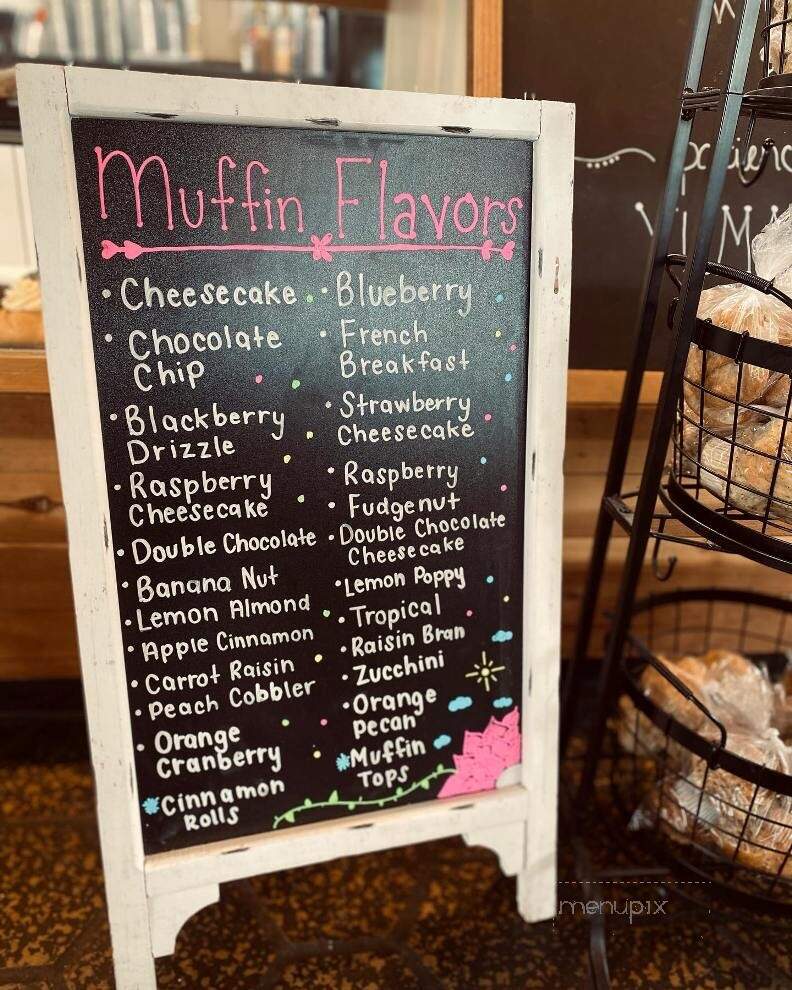 Muffin Flavors
• Cheesecake
• Chocolate
Chip
• Blackberry
Drizzle
• Raspberry
Cheesecake
• Double Chocolate
• Banana Nut
• Lemon Almond
• Apple Cinnamon
• Carrot Raisin
• Peach Cobbler
• Orange
Cranberry
* Cinnamon
Rolls
• Blueberry
• French
Breakfast
• Strawberry
Cheesecake
• Raspberry
• Fudgenut
• Double Chocolate
Cheesecake
• Lemon Poppy
• Tropical
• Raisin Bran
• Zucchini
• Orange
Pecan
* Muffin
Tops
menupix